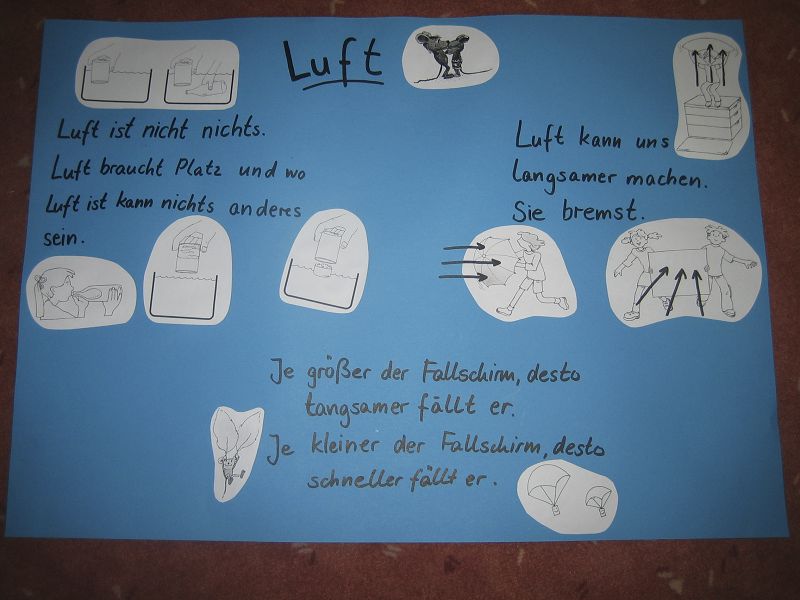 Luft
Luft ist nicht nichts.
Luft braucht Platz und wo
Luft ist kann nichts anderes
sein.
Luft kann uns
langsamer machen.
Sie bremst.
Je größer der Fallschirm, desto
langsamer fällt er.
Je kleiner der Fallschirm, desto
schneller fällt er.